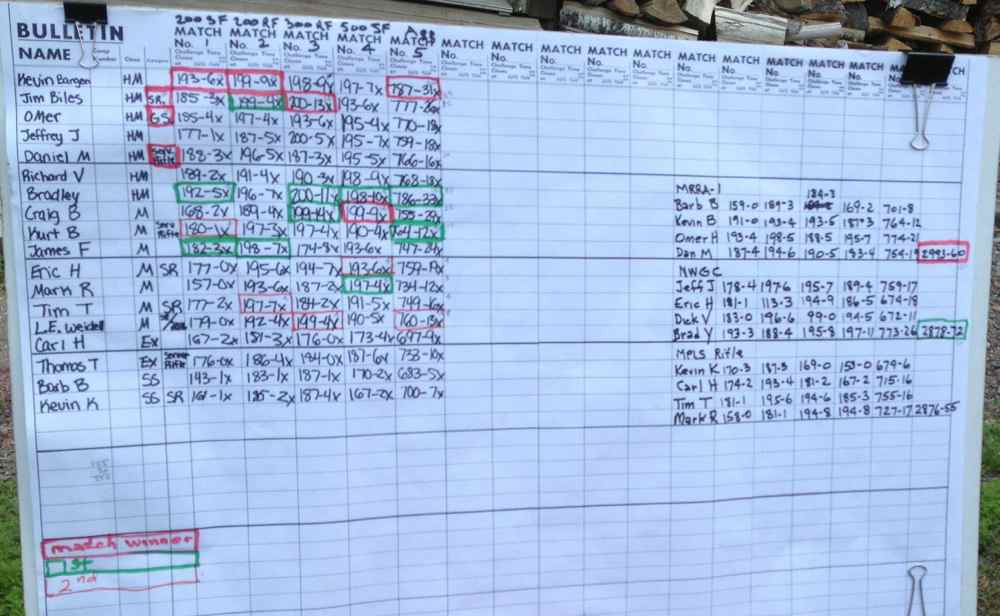 200 SF 200 RF 300 RF 500 SF Agg
BULLETIN MATCH MATCH MATCH MATCH MATCH MATCH MATCH MATCH MATCH MATCH MATCH MATCH MATCH MATCH MATCH
NAME Class No. 1 No. 2 No. 3 No. 4 No. 5 No. No. No. No. No. No. No. No. No.
Kevin Bangen HM 193-6x 199-9x 198-9x 197-7x 787-31x
Jim Biles HM SR. 185-3x 199-4x 200-13x 193-6x 777-26x
Omer HM GS. 185-4x 197-4x 193-6x 195-4x 770-18x
Jeffrey J HM 177-1x 187-5x 200-5x 195-7x 759-18x
Daniel M HM Serv. Rifle 188-3x 196-5x 187-3x 195-5x 766-16x
Richard V HM 189-2x 191-4x 190-3x 198-9x 768-18x
Bradley HM 192-5x 196-7x 200-11x 198-10x 786-33x
Craig B M 168-2x 189-4x 199-14x 199-9x 755-29x
Kurt B M Serv Rifle 180-1x 197-3x 197-4x 190-4x 764-12x
James F M 182-3x 198-7x 174-8x 193-6x 747-24x
Eric H M SR 177-0x 195-6x 194-7x 193-6x 759-19x
Mark R M 157-0x 193-6x 187-2x 197-4x 734-12x
Tim T M SR 177-2x 197-7x 184-2x 191-5x 749-16x
L.E. Weidell M 179-0x 192-4x 199-4x 190-5x 160-13x
Carl H Ex 167-2x 181-3x 176-0x 173-4x 697-9x
Thomas T Ex Service Rifle 176-0x 186-4x 194-0x 187-6x 738-10x
Barb B SS 143-1x 183-1x 187-1x 170-2x 683-5x
Kevin K SS SR 161-1x 185-2x 187-4x 167-2x 700-7x
MRRA-1 184-3
Barb B 159-0 189-3 169-2 701-8
Kevin B 191-0 193-4 193-5 187-3 764-12
Omer H 193-4 198-5 188-5 195-7 774-21
Dan M 187-4 194-6 190-5 183-4 754-19 2993-60
NWGC
Jeff J 178-4 197-6 195-7 189-4 759-17
Eric H 181-1 113-3 194-9 186-5 674-18
Dick V 183-0 196-6 99-0 194-5 672-11
Brad Y 193-3 188-4 195-8 197-11 773-26 2878-72
MPLS Rifle
Kevin K 170-3 187-3 169-0 153-0 679-6
Carl H 174-2 193-4 181-2 167-2 715-16
Tim T 181-1 195-6 194-6 185-3 755-16
Mark R 158-0 181-1 194-8 194-8 727-17 2876-55
match winner
1st
2nd